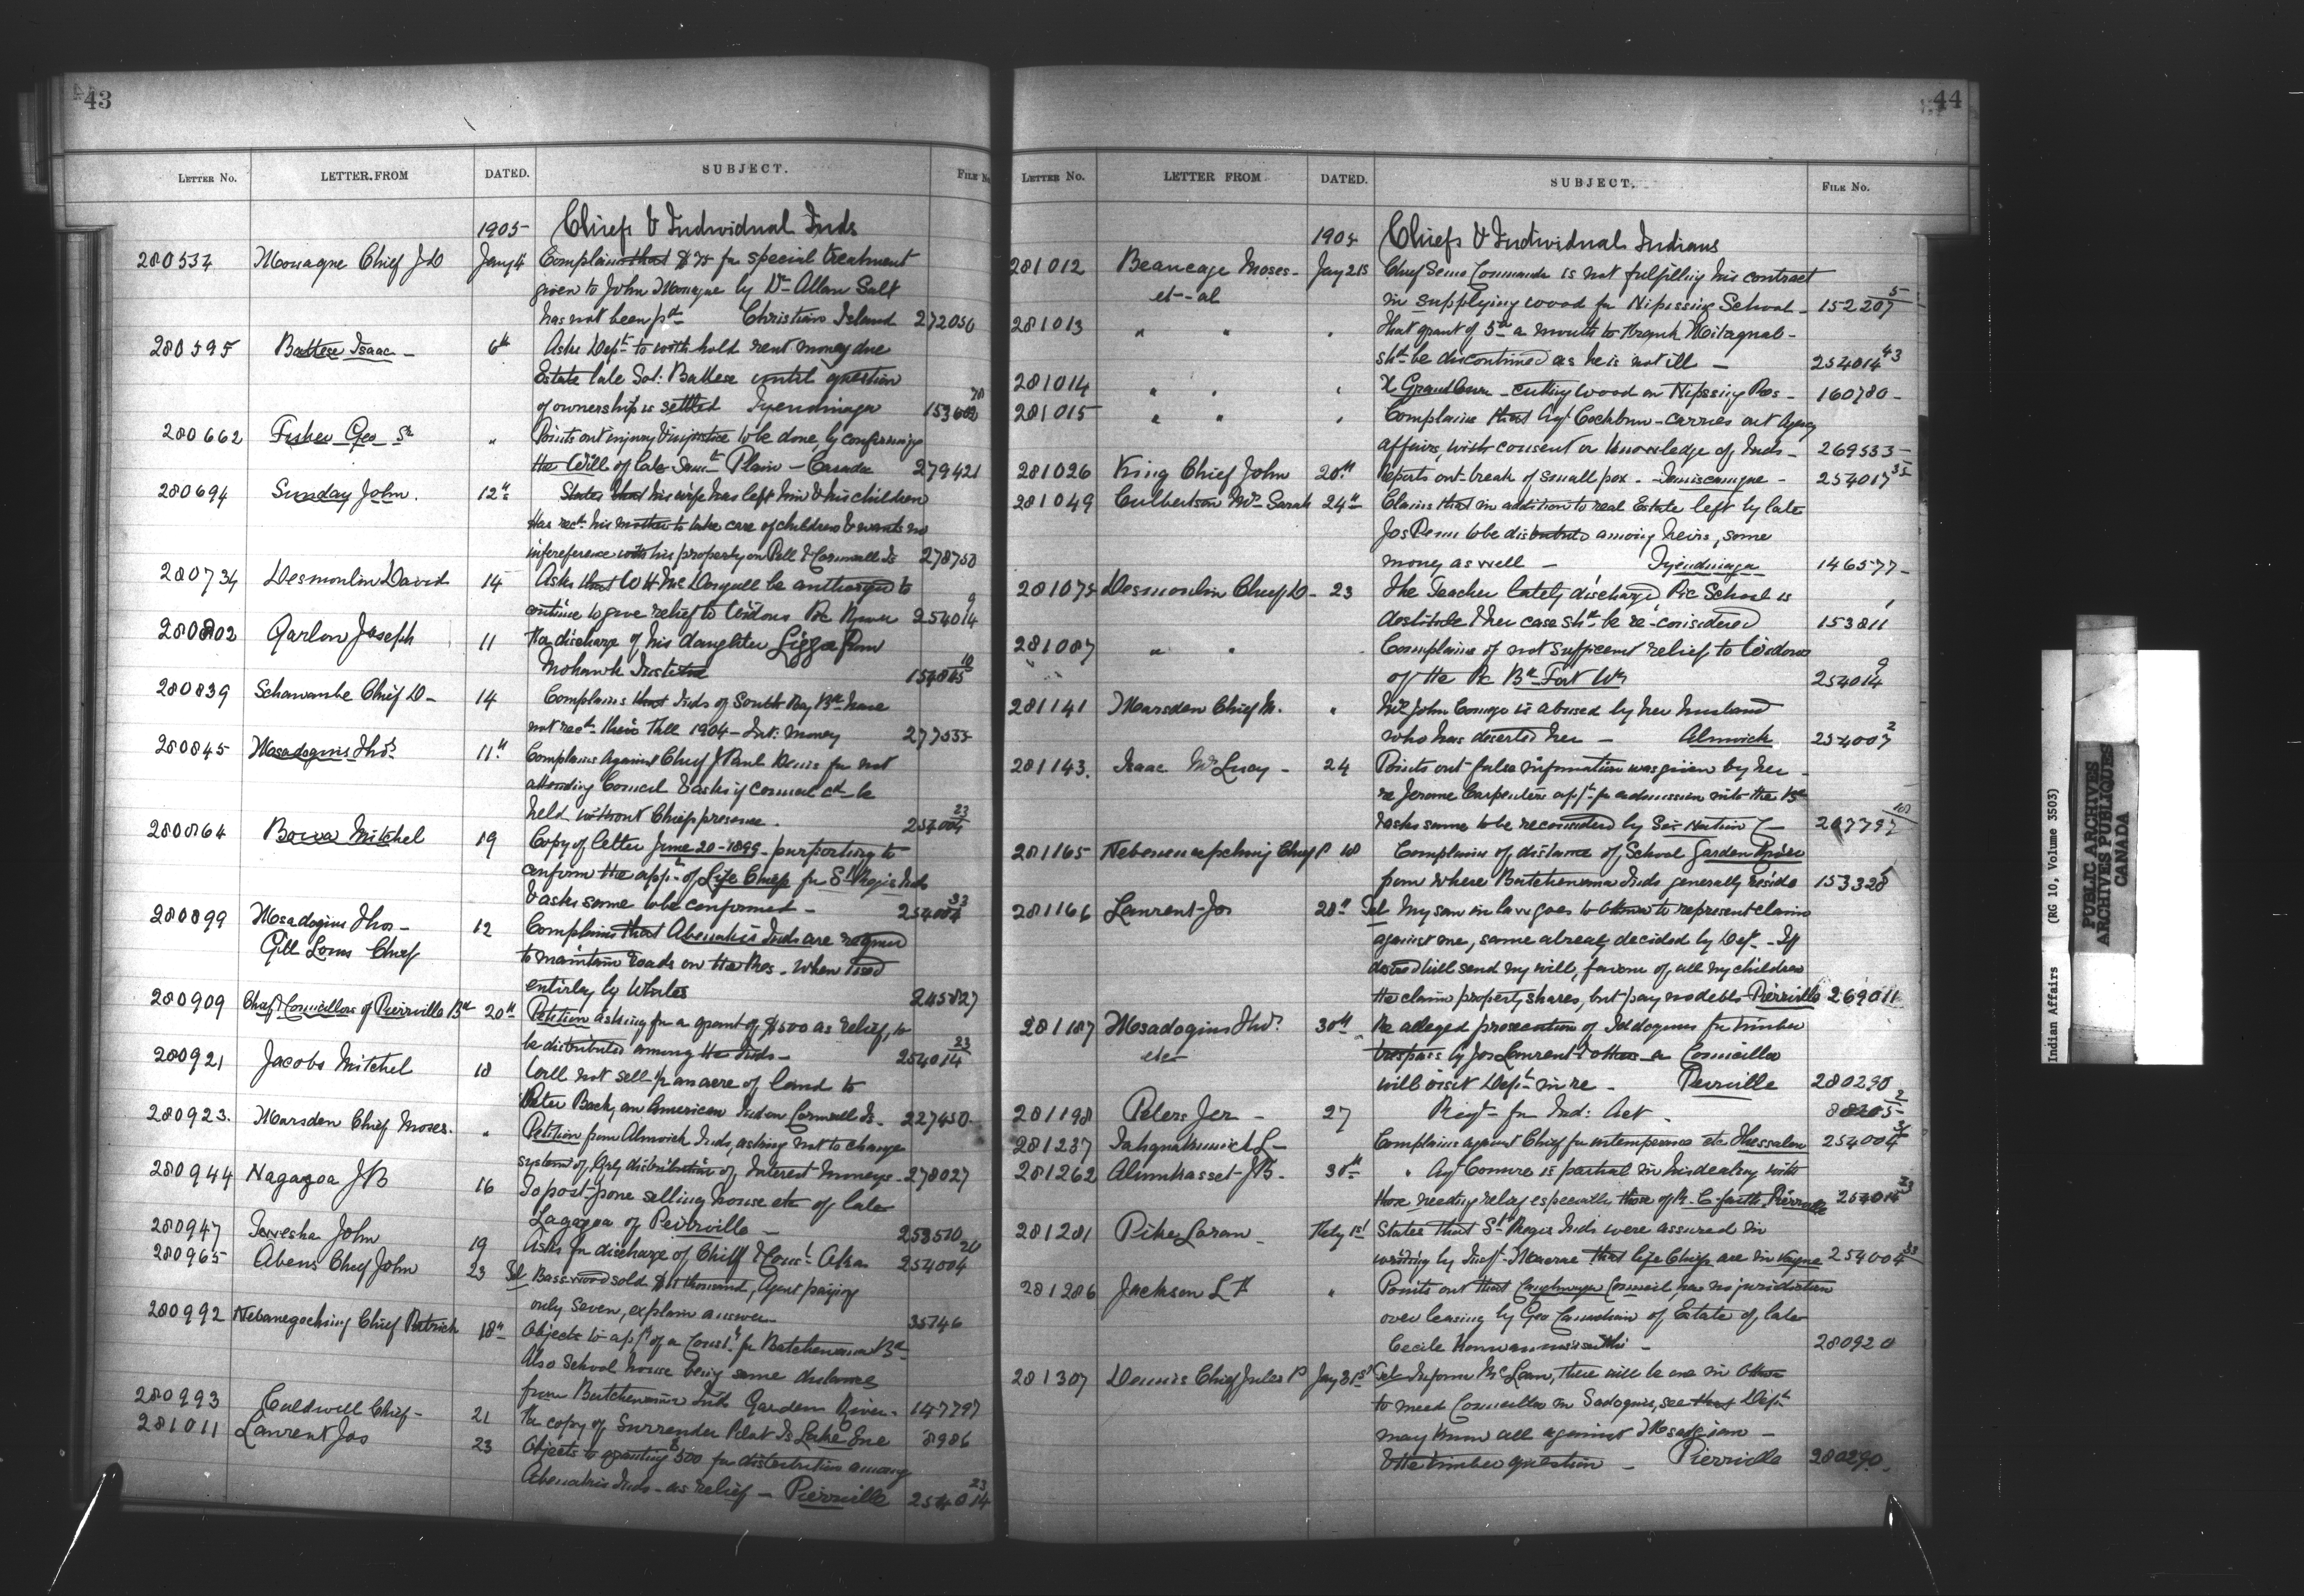 43
LETTER No. LETTER FROM DATED. SUBJECT. FILE No
1905 Chiefs & Individual Inds
280537 Monague Chief J D Jany 4 Complains that $75 for special treatment
given to John Monague by Dr Allan Salt
has not been pd Christian Island 272050
280595 Battese Isaac - 6th Asks Dept to with hold rent money due
Estate late Sol: Battese until question
of ownership is settled Tyendinaga
280662 Fisher Geo Sr " Points out injury & injustice to be done by confirming
the Will of late Saml Plain - Sarnia 279421
280694 Sunday John. 12th States that his wife has left him & his children
Has reqd his mother to take care of children & wants no
interference with his property on & Cornwall Is 278750
280734 Desmoulin David 14 Asks that W H McDougall be authorized to
continue to give relief to Widows Pic River 254014 9
280802 Garlow Joseph 11 Re discharge of his daughter Lizzie from
Mohawk Institute 154845 10
280839 Schawanbe Chief D - 14 Complains that Inds of South Bay Bd have
not recd their Fall 1904 - Int: money 277535
280845 Msadoques Thos 11th Complains against Chief J Paul Denis for not
attending Council & asks if council cd be
held without Chiefs presence. 254004 23
280864 Bova Mitchel 19 Copy of letter June 20-1899 - purporting to
confirm the appt of Life Chiefs for St Regis Inds
& asks same to be confirmed - 254004 33
280899 Msadoques Thos - 12 Complains that Abenakis Inds are required
Gill Louis Chief to maintain roads on the Res. when used
entirely by Whites 245827
280909 Chief & Councillors of Pierrville Bd 20th Petition asking for a grant of $500 as relief, to
be distributed among the Inds - 254014 23
280921 Jacobs Mitchel 18 Will not sell ½ an acre of land to
Peter Back, an American Ind on Cornwall Is. 227450
280923. Marsden Chief Moses. " Petition from Alnwick Inds, asking not to change
system of Qrly distribution of Interest moneys - 278027
280944 Nagazoa J B 16 To post-pone selling house etc of late
Lagazoa of Peirrville - 253510
280947 Tawesha John 19 Asks for discharge of Chief & Counl 254004 20
280965 Abens Chief John 23 Tel Basswood sold $11 thousand, Agent paying
only seven, explain answer 35746
280992 Nebanegoching Chief Patrick 18th Objects to appt of a Const for Batchewana Bd
Also School house being same distance
from Batchewana Inds Garden River - 147797
280993 Caldwell Chief - 21 Re copy of Surrender Pelat Is Lake Erie 8986
281011 Laurent Jos 23 Objects to granting $500 for distribution among
Abenakis Inds - as relief - Pierrville 254014 23
44
LETTER No. LETTER FROM DATED. SUBJECT. FILE No.
1905 Chiefs & Individual Indians
281012 Beaucage Moses - Jany 21s Chief Semo Commanda is not fulfilling his contract
et - al in supplying wood for Nipissing School - 152207 5
281013 " " " That grant of 5 00 a month to Frank
shd be discontinued as he is not ill - 254014 43
281014 " " " X cutting wood on Nipissing Res - 160780 -
281015 " " " Complains that Agt Cockburn - carries out Agency
affairs, with consent or knowledge of Inds - 269533 -
281026 King Chief John 20th Reports out-break of small pox - Temiscamque - 254017 35
281049 Culbertson Mrs Sarah 24th Claims that in addition to real Estate left by late
Jos Penn to be distributed among heirs, some
money as well - Tyendinaga 146577 -
281075 Desmoulin Chief D - 23 The Teacher lately discharged Pic School is
destitute & her case shd be re-considered 153811 1
281087 " " Complains of not sufficient relief to Widows
of the Pic Bd Fort Wm 254014 9
281141 Marsden Chief M. " Mrs John Comego is abused by her husband
who has deserted her - Alnwick 254007 2
281143. Isaac Mrs Lucy - 24 Points out false information was given by her -
re Jerome Carpenters appn for admission into the Bd
& asks same to be reconsidered by Six Nation C -
281165 Nebenenegoching Chief P 18 Complains of distance of School Garden River
from where Batchewana Inds generally reside 153328
281166 Laurent Jos 28th Tel My son in law goes to Ottawa to represent claim
against me, same already decided by Dept - If
desired will send my will, favour of all my children
He claims property shares, but pay no debts - Pierrville 269011
281187 Msadoques Thos 30th Re alleged prosecution of for timber
etc trespass by Jos Laurent & others - a Councillor
will visit Dept in re - Pierrville 280290
281198 Peters Jer - 27 Reqt for Ind: Act -
281237 Complains against Chief for intemperance etc Thessalon 254004
281262 Alumkasset J B. 30th " Agt Comire is partial in his dealing with
those needing relief especially those of R. C faith Pierrville 254014 23
281281 Pike Loran - Feby 1st States that St Regis Inds were assured in
writing by that life Chiefs are in vogue 254004 33
281286 Jackson L H " Points out that Caughnawaga Council has no jurisdiction
over leasing by Geo Canadian of Estate of late
Cecile 280920
281307 Dennis Chief Jules P Jany 31st Tel Inform McLean, there will be one in Ottawa
to meet Councillor M Sadoquis, see that Dept
may know all against
& the timber question - Pierrville 280290.
Indian Affairs (RG 10, Volume 3503)
PUBLIC ARCHIVES
ARCHIVES PUBLIQUES
CANADA